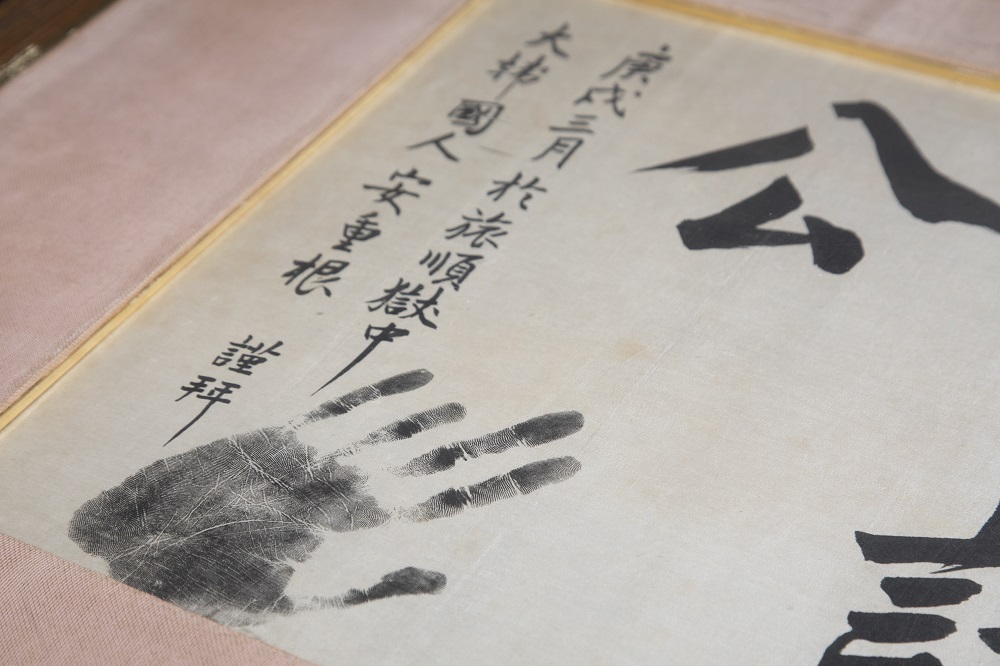 公
庚戌三月於旅順獄中
大韓國人 安重根
謹拜